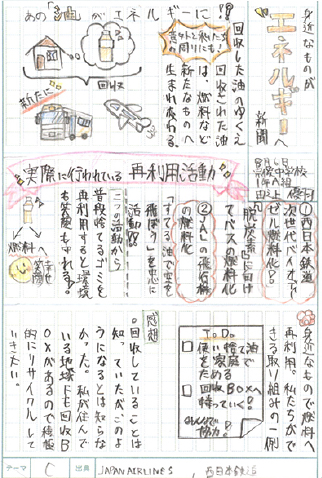 身近なものが
エネルギー
新聞へ
あの「油」がエネルギーに!?
意外と私たちの周りにも!
回収
新たに
回収した油のゆくえ
は、燃料など
新たなものへ
生まれ変わる。
実際に行われている 再利用活動
①西日本鉄道が
次世代バイオディー
ゼル燃料化?
「脱炭素」に向け
てバスの燃料化
②JALの飛行機
の燃料化
「すてる油で空を
飛ぼう」を中心に
活動!!
二つの活動から
普段捨てるゴミを
再利用すると環境
も笑顔もすれる。
燃料へ
身近なもので燃料へ
再利用、私たちがで
きる取り組みの一例
To Do
使い捨て油で
家庭の
ためる
回収BOXへ
持っていく!
みんなで協力!
感想
。回収していることは
知っていたがこのよ
うになるとは知らな
かった。私が住んで
いる地域にも回収B
OXがあるので積極
的にリサイクルして
いきたい。
テーマ C 出典 JAPAN AIRLINES 西日本鉄道